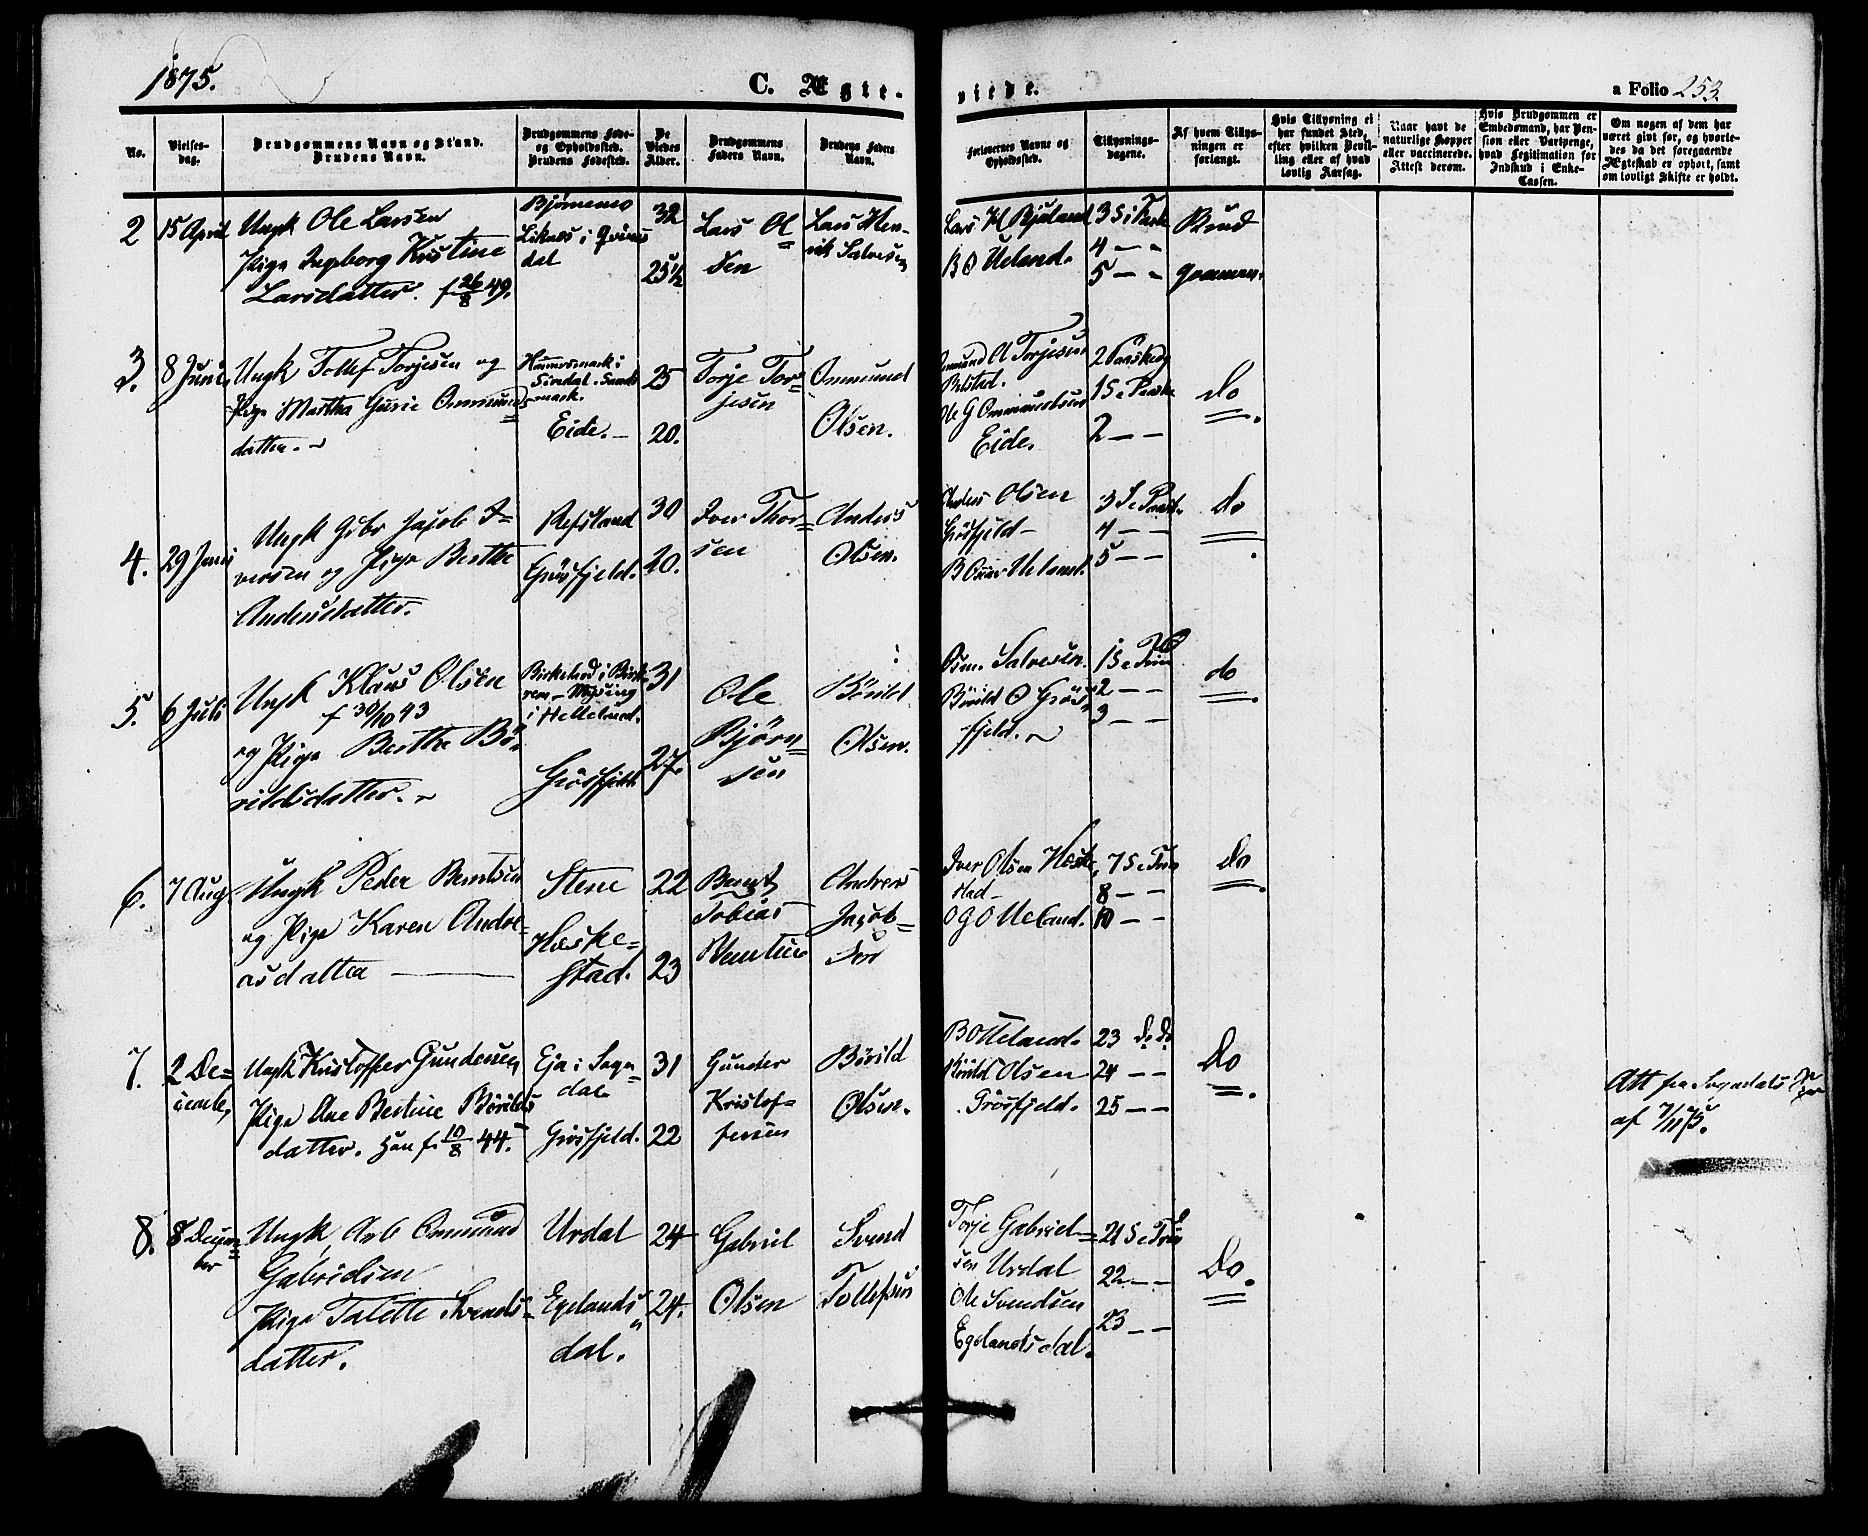 1875.
C. Ægte-
viede.
a Folio 253.
No.
Vielses-
dag.
Brudgommens Navn og Stand.
Brudens Navn.
Brudgommens Føde-
og Opholdssted.
Brudens Fødested.
De
Viedes
Alder.
Brudgommens
Faders Navn.
Brudens Faders
Navn.
Forlovernes Navne og
Opholdssted.
Tillysnings-
dagene.
Af hvem Tillys-
ningen er
forlangt.
Hvis Tillysning ei
har fundet Sted,
efter hvilken Bevil-
ling eller af hvad
lovlig Aarsag.
Naar havt de
naturlige Kopper
eller vaccinerede.
Attest derom.
Hvis Brudgommen er
Embedsmand, har Pen-
sion eller Vartpenge,
hvad Legitimation for
Indskud i Enke-
Cassen.
Om nogen af dem har
været givt før, og hvorle-
des da det foregaaende
Ægteskab er ophørt, samt
om lovligt Skifte er holdt.
2
15 April
Ungk Ole Larsen
Pige Ingeborg Kristine
Larsdatter. f. 26/8 49.
i Qvines
dal
32
25 1/2
Lars Ol
sen
Lars Hen-
rik Salvesen
Lars H Bjuland
B O Ueland.
3 S i Faste
4 — -
5 — -
Brud
gommen.
3.
8 Juni
Ungk Tollef Torjesen og
Pige Martha Gurie Ommunds=
datter. ~
Hammersmark i
Sirdal. Sands
mark.
Eide. -
25
20.
Torje Tor=
jesen
Ommund
Olsen.
A Torjesen
Ole G Ommundsen
Eide.
2 Paaskedg
1 S e Paaske
2 — -
do
4.
29 Juni
Ungk Gbr Jacob I=
versen og Pige Berthe
Andersdatter.
Refsland
Grösfjeld.
30
20.
Iver Thor=
sen
Anders
Olsen.
Anders Olsen
Grösfjeld -
Ueland.
3 S e Paask.
4 — -
5 — -
do
5.
6 Juli
Ungk Klaus Olsen
f 30/10 43
og Pige Berthe Bö-
rildsdatter. ~
Birkeland i Birk
rem - Mysing
i Helleland.
Grösfjeld
31
27.
Ole
Björn=
sen
Börild
Olsen.
Salvesen.
Börild O Grös
fjeld. ~
1 S e Trin
2 — -
3 — -
do
6.
7 Aug
Ungk Peder Berntsen
og Pige Karen Andre-
asdatter ———
Stene
Hæske=
stad.
22
23
Bernt
Tobias
Andreas
Jacob=
sen
Iver Olsen Hæske
stad -
O G O Ueland.
7 S e Trin
8 — -
10 — -
Do
7.
2 De=
cembr,
Ungk Kristoffer Gundersen
Pige Ane Bertine Börilds
datter. Han f. 10/8 44.
Eja i Sogn
dal
Grösfjeld.
31
22
Gunder
Kristof=
fersen
Börild
Olsen.
B O Ueland.
Börild Olsen
Grösfjeld.
23 do do
24 — -
25 — -
Do
Att fra Sogndals
af 7/11 75.
8.
8 Decem=
ber
Ungk Arb Ommund
Gabrielsen
Pige Talette Svends=
datter.
Urdal
Egelands
dal.
24
24.
Gabriel
Olsen
Svend
Tollefsen
Torje Gabriel=
sen Urdal
Ole Svendsen
Egelandsdal.
21 S e Trin
22 — -
23 — -
Do.